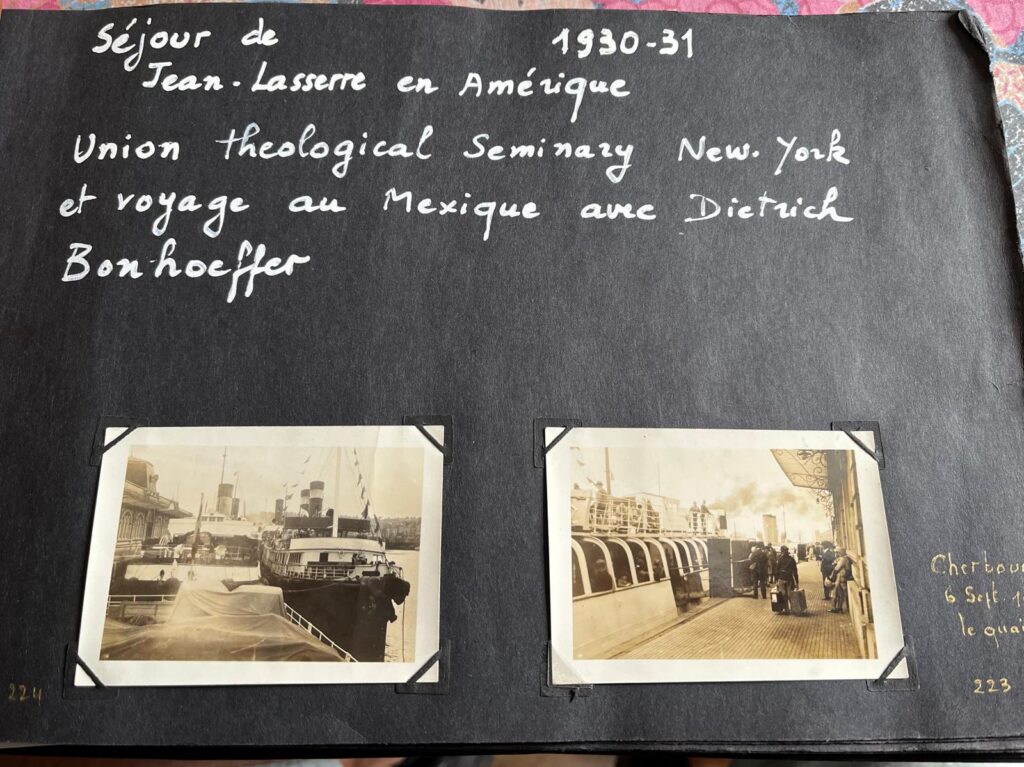 Séjour de 1930-31
Jean-Lasserre en Amérique
Union theological Seminary New-York
et voyage au Mexique avec Dietrich
Bonhoeffer
Cherbour
6 Sept. 1
le quai
224
223